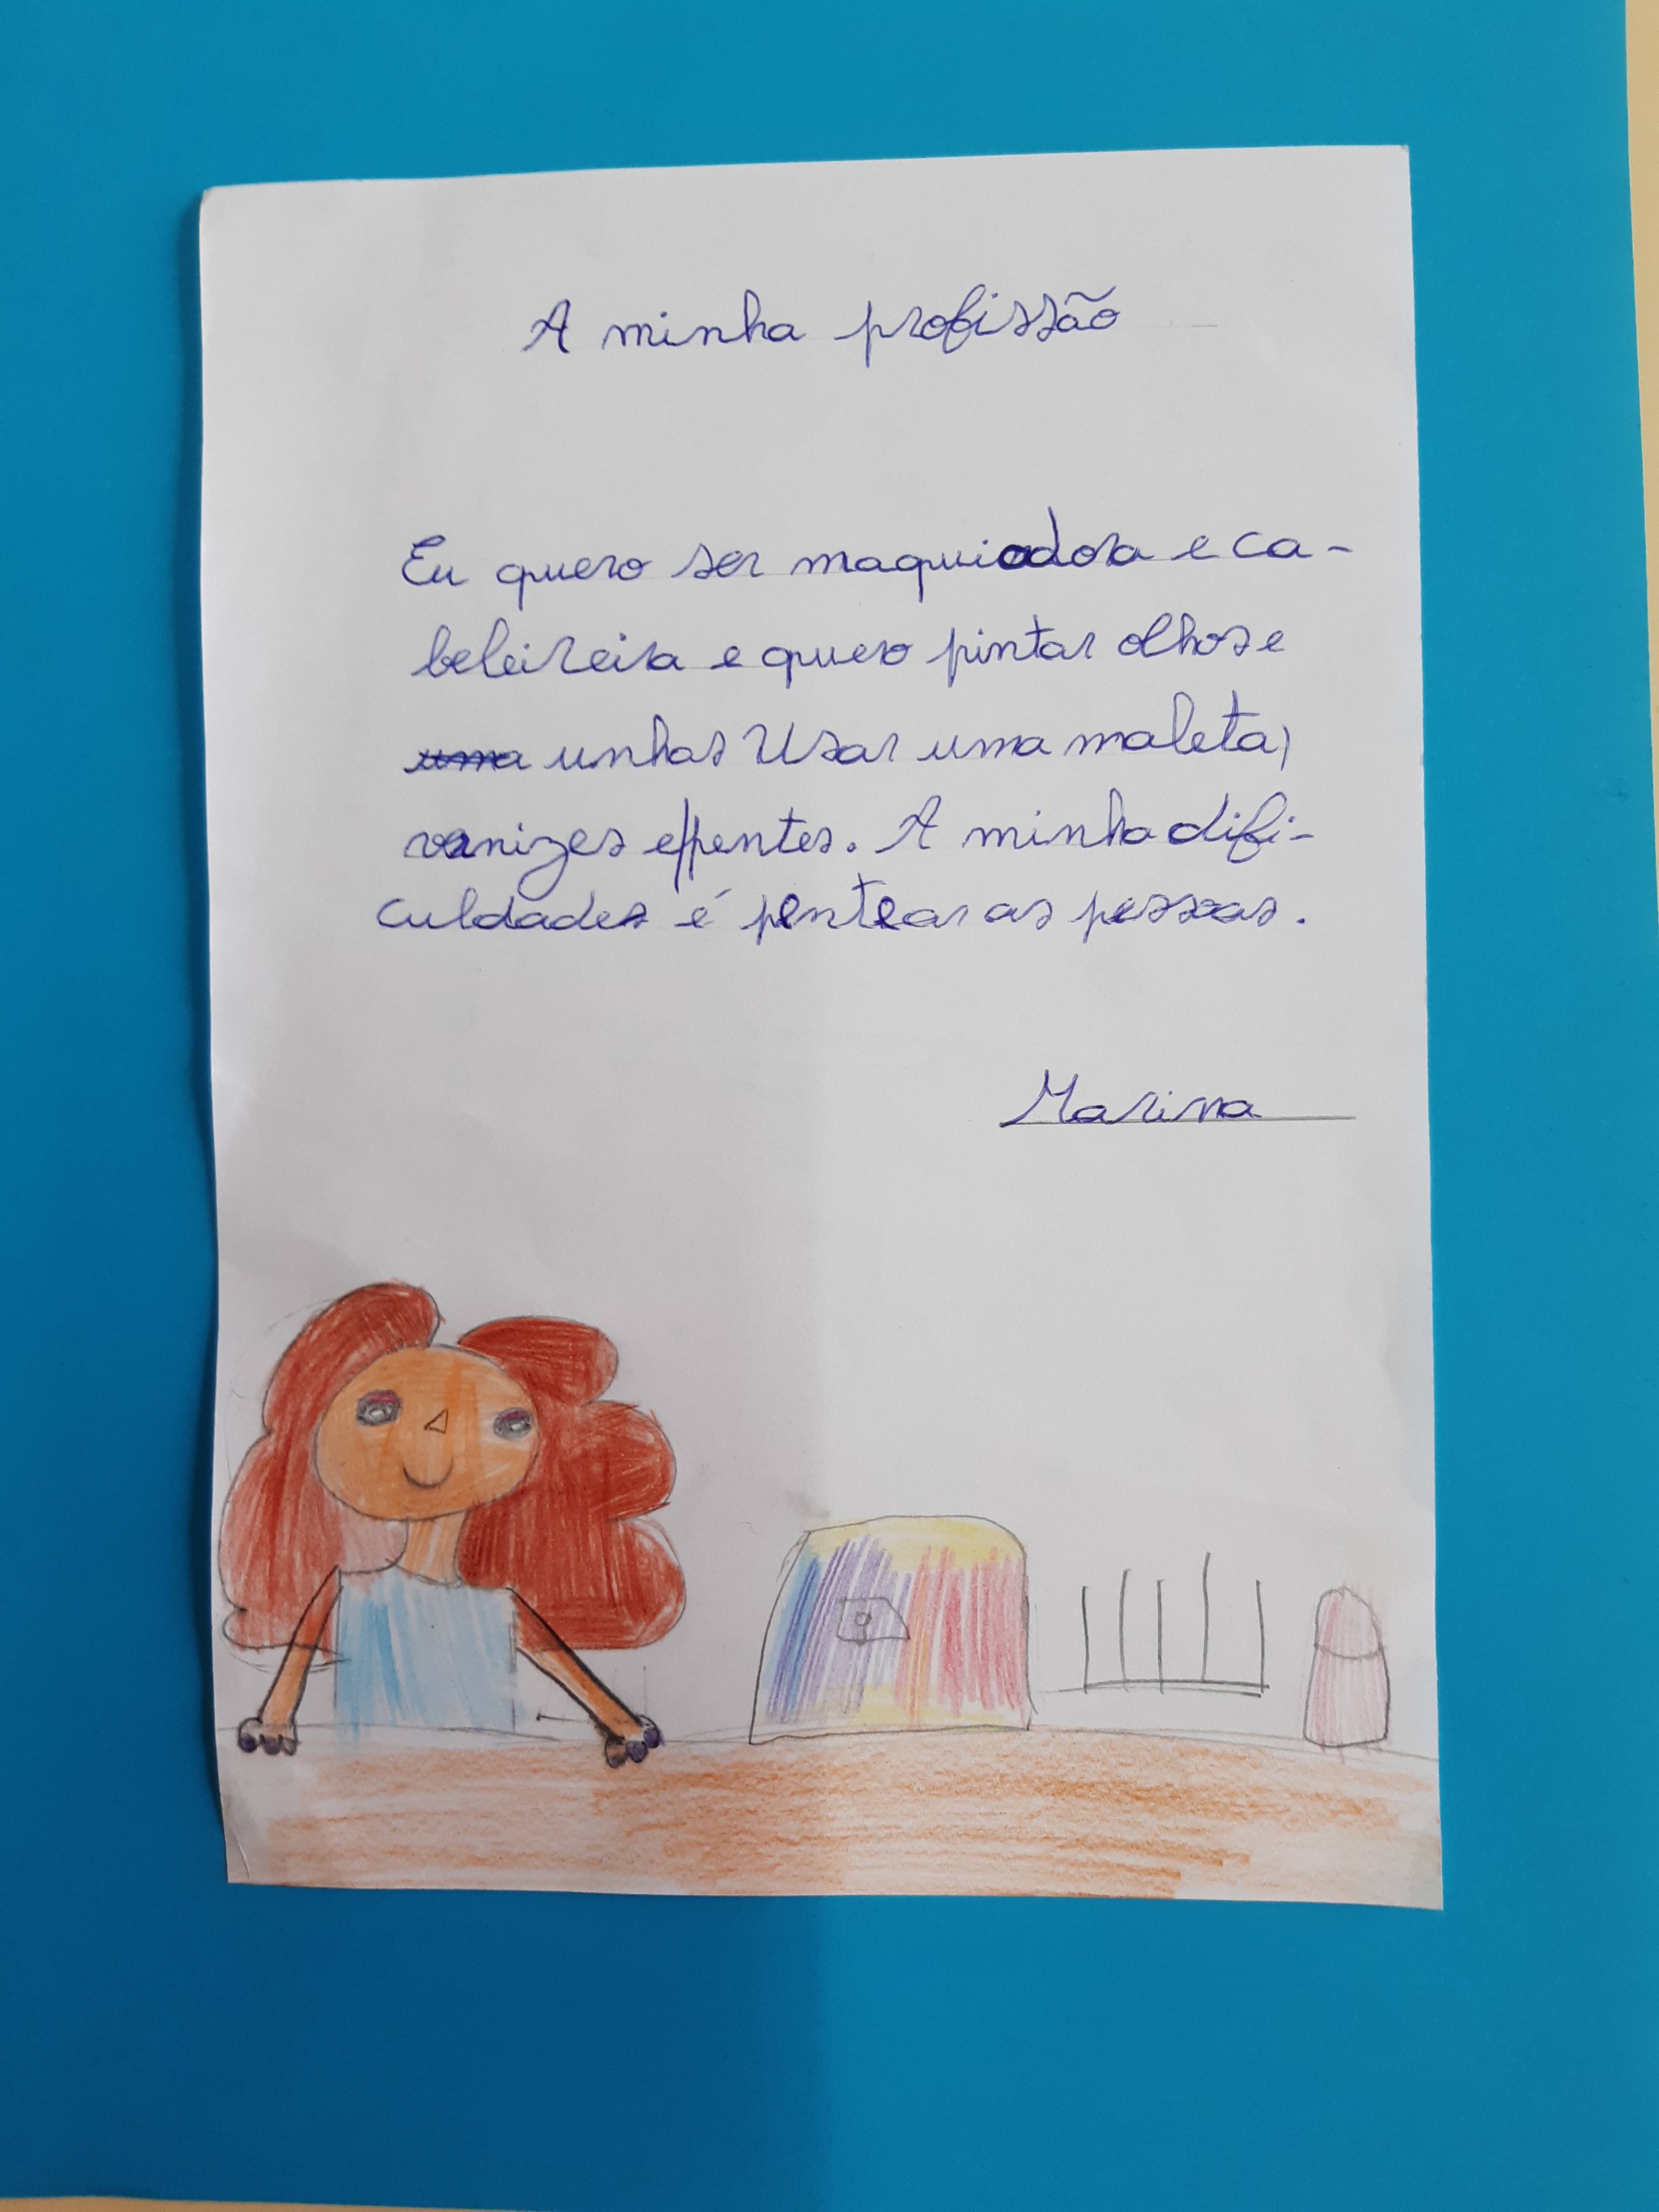 A minha profissão
Eu quero ser maquiadora e ca-
beleireira e quero pintar olhos e
unhas Usar uma maleta,
vanizes e pentes. A minha difi-
culdades é pentear as pessoas.
Marina